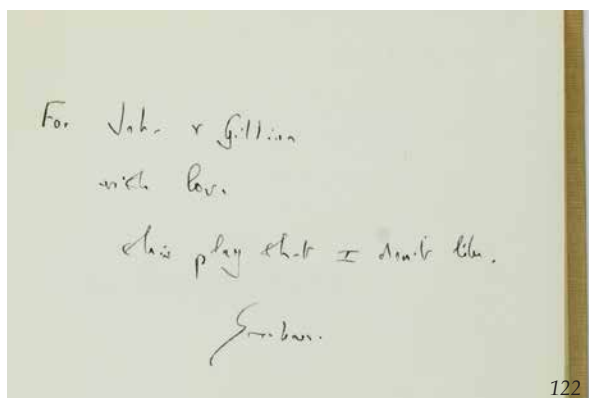 For John & Gillian
with love
this play that I don't like.
122